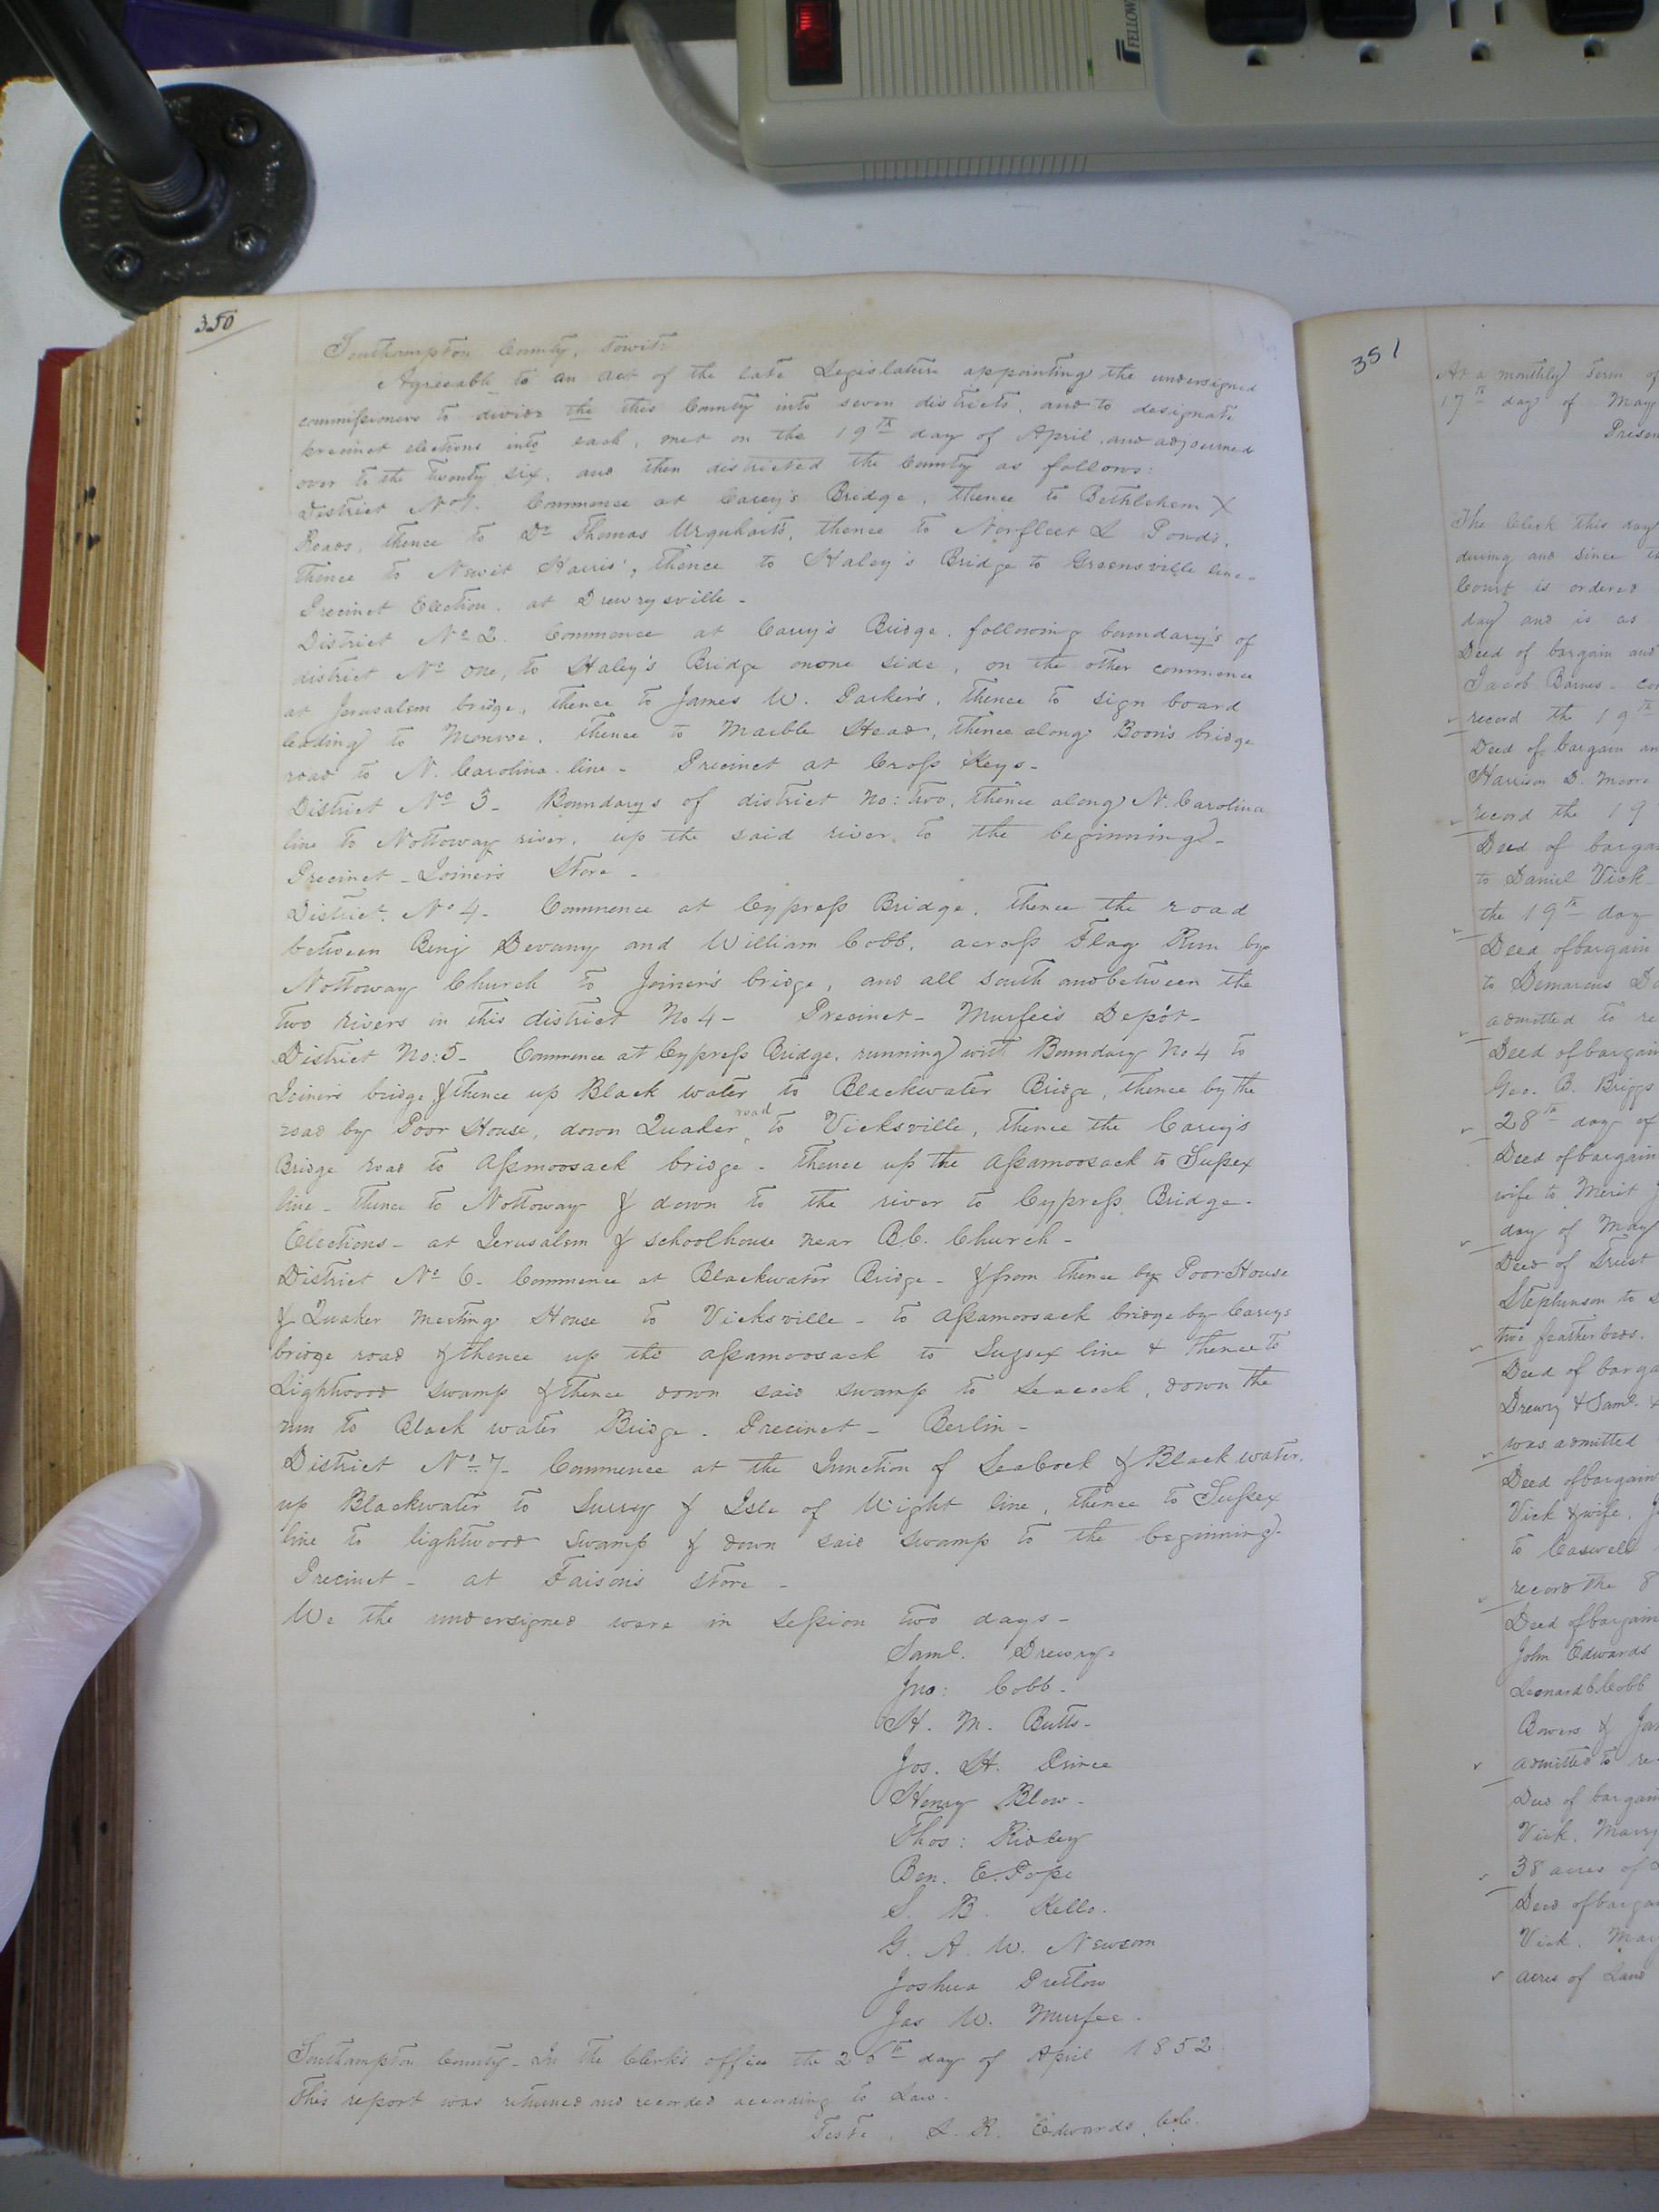 FELLOW
350
Southampton County, towit:
Agreeable to an act of the late Legislature appointing the undersigned
commissioners to divide the this County into seven districts, and to designate
precinct elections into each, met on the 19th day of April, and adjourned
over to the twenty six, and then districted the County as follows:
District No 1. Commence at Carey's Bridge, thence to Bethlehem X
Roads, thence to Dr Thomas Urquharts, thence to Norfleet L Pond's,
thence to Newit Harris', thence to Haley's Bridge to Greensville line-
Precinct Election, at Drewrysville-
District No 2. Commence at Carey's Bridge, following boundary's of
district No one, to Haley's Bridge on one side, on the other commence
at Jerusalem bridge, thence to James W. Parker's, thence to sign board
leading to Monroe, thence to Marble Head, thence along Boon's bridge
road to N. Carolina line - Precinct at Cross Keys-
District No 3- Boundarys of district No: two, thence along N. Carolina
line to Nottoway river, up the said river, to the beginning-
Precinct - Joiner's Store-
District, No 4- Commence at Cypress Bridge, thence the road
between Benj Devany and William Cobb, across Flag Run by
Nottoway Church to Joiner's bridge, and all south and between the
two rivers in this district No 4- Precinct- Murfee's Depôt-
District No: 5- Commence at Cypress Bridge, running with Boundary No 4 to
Joiner's bridge & thence up Black water to Blackwater Bridge, thence by the
road by Poor House, down Quaker road to Vicksville, thence the Carey's
Bridge road to Assmoosack bridge- thence up the Assamoosack to Sussex
line- thence to Nottoway & down to the river to Cypress Bridge-
Elections- at Jerusalem & schoolhouse near B.C. Church-
District No 6- Commence at Blackwater Bridge- & from thence by Poor House
& Quaker meeting House to Vicksville- to Assamoosack bridge by Careys
bridge road & thence up the assamoosack to Sussex line & thence to
Lightwood swamp & thence down said swamp to Seacock, down the
run to Black water Bridge. Precinct- Berlin-
District No 7- Commence at the Junction of Seacock & Black water,
up Blackwater to Surry & Isle of Wight line, thence to Sussex
line to lightwood swamp & down said swamp to the beginning-
Precinct- at Faison's store-
We the undersigned were in session two days-
Saml. Drewry-
Jno: Cobb-
H. M. Butts-
Jos. H. Prince
Henry Blow-
Thos: Ridley
Ben. E. Pope
S. B. Kello.
G. A. W. Newsom
Joshua Pretlow
Jas W. Murfee.
Southampton County- In the Clerk's office the 26th day of April 1852
This report was returned and recorded according to Law-
Teste, L. R. Edwards, C.C.
351
At a monthly term of
17th day of May
Presen
The Clerk this day
during and since th
Court is ordered
day and is as
Deed of bargain and
Jacob Barnes- co
record the 19th
Deed of bargain an
Harrison D. Moore
record the 19
Deed of bargai
to Daniel Vick-
the 19th day
Deed of bargain
to Demarcus D
admitted to re
Deed of bargain
Geo. B. Briggs
28th day of
Deed of bargain
wife to Merit J
day of May
Deed of Trust
Stephenson to S
two feather beds.
Deed of barga
Drewry & Saml.
was admitted
Deed of bargain
Vick & wife, J
to Caswell
record the 8
Deed of bargain
John Edwards
Leonard C Cobb
Bowers & Ja
admitted to re
Deed of bargain
Vick, Mary
38 acres of L
Deed of bargai
Vick, Mary
acres of Land